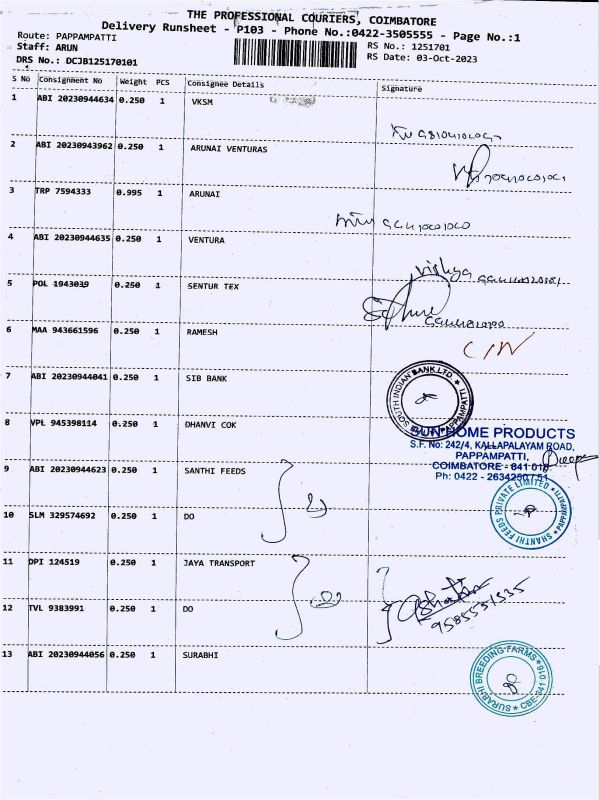 THE PROFESSIONAL COURIERS, COIMBATORE
Delivery Runsheet - P103 - Phone No.:0422-3505555 - Page No.:1
Route: PAPPAMPATTI
Staff: ARUN
DRS No.: DCJB125170101
RS No.: 1251701
RS Date: 03-Oct-2023
S No Consignment No Weight PCS Consignee Details Signature
1 ABI 20230944634 0.250 1 VKSM
2 ABI 20230943962 0.250 1 ARUNAI VENTURAS
3 TRP 7594333 0.995 1 ARUNAI
4 ABI 20230944635 0.250 1 VENTURA
Vidhya
5 POL 1943039 0.250 1 SENTUR TEX
6 MAA 943661596 0.250 1 RAMESH
C/N
7 ABI 20230944041 0.250 1 SIB BANK
SOUTH INDIAN BANK LTD. ★ PAPPAMPATTI ★
8 VPL 945398114 0.250 1 DHANVI COK
SUN HOME PRODUCTS
S.F. No: 242/4, KALLAPALAYAM ROAD,
PAPPAMPATTI,
COIMBATORE - 641 016
Ph: 0422 - 2634250 / 51
9 ABI 20230944623 0.250 1 SANTHI FEEDS
SHANTHI FEEDS PRIVATE LIMITED ★ PAPPAMPATTI ★
10 SLM 329574692 0.250 1 DO
11 DPI 124519 0.250 1 JAYA TRANSPORT
12 TVL 9383991 0.250 1 DO
9585551535
13 ABI 20230944056 0.250 1 SURABHI
SURABHI BREEDING FARMS ★ CBE-641 016 ★